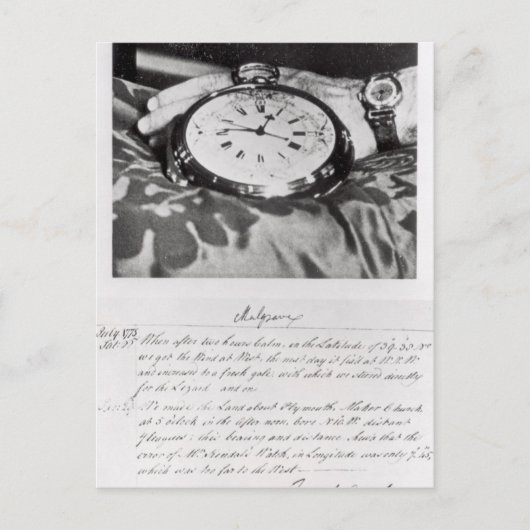 Mulgrave
July 1775
Sat: 25 When after two hours Calm, in the Latitude of 39°. 55' N°
we got the Wind at West, the next day it fix'd at W.N.W.
and increased to a fresh gale, with which we steered directly
for the Lizard and on
We made the Land about Plymouth, Maker Church,
at 5 o'clock in the after noon, bore N10.W. distant
7 leagues; this bearing and distance shew'd that the
error of Mr. Kendals Watch, in Longitude was only 7'.45",
which was too far to the West—